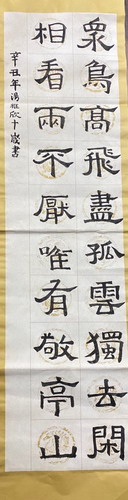 眾鳥高飛盡孤雲獨去閑
相看兩不厭唯有敬亭山
辛丑年湯雅欣十歲書